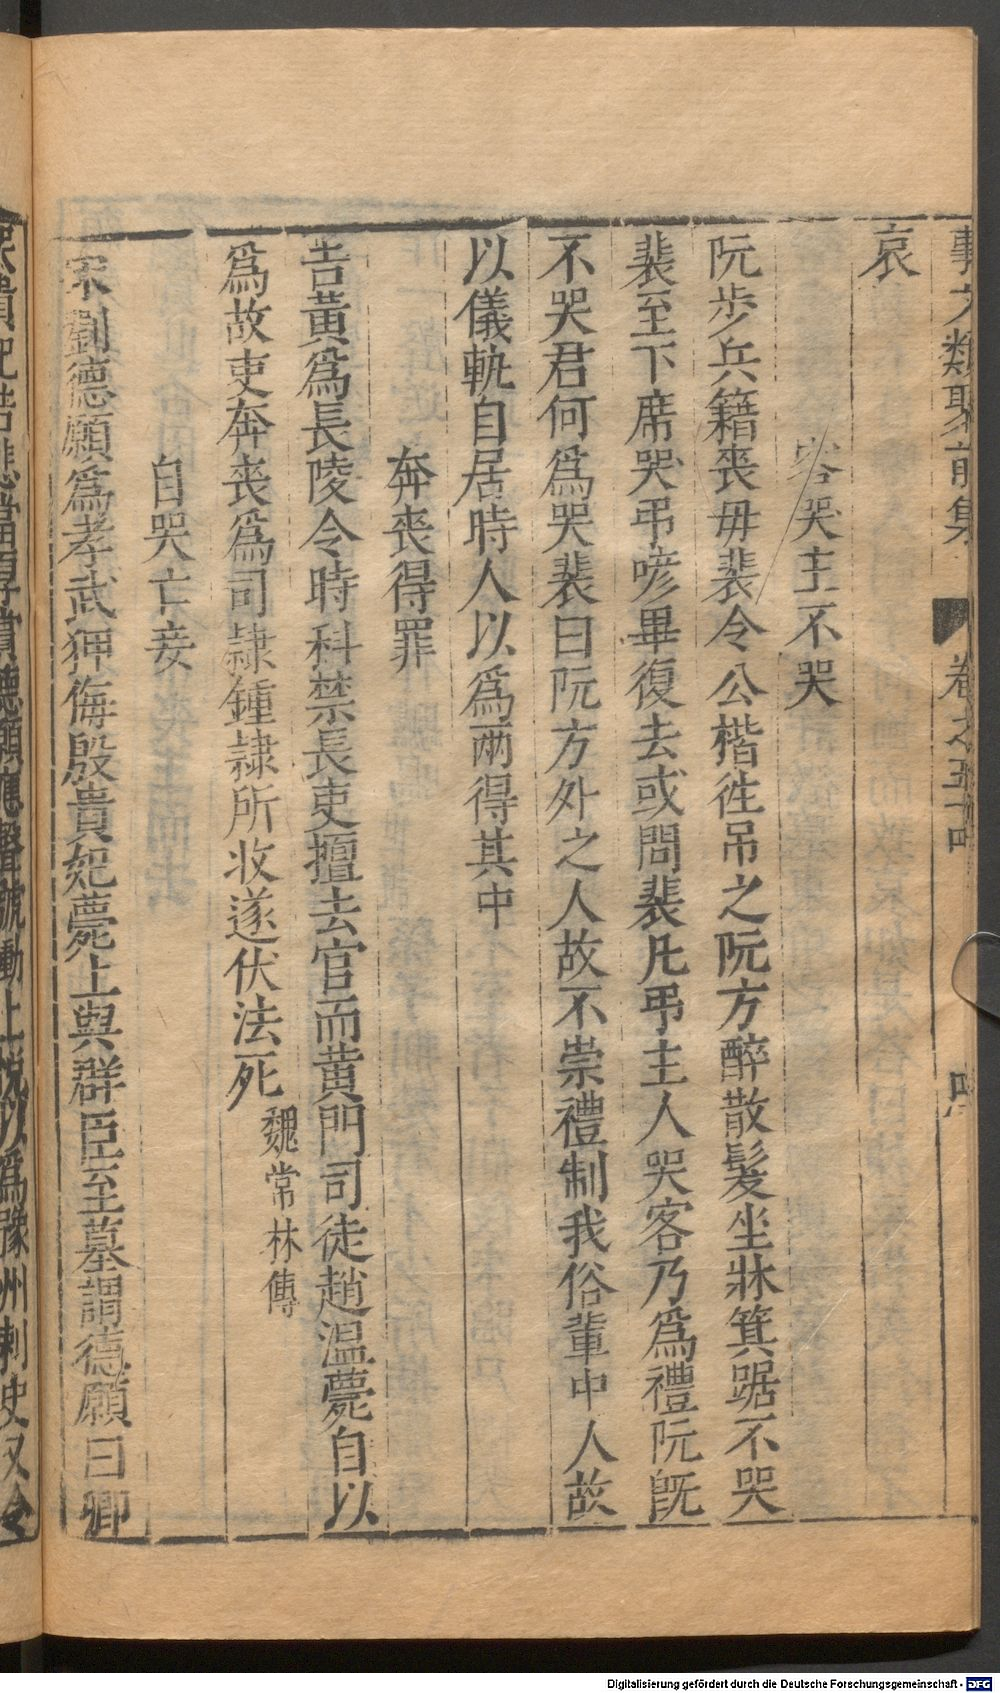 事文類聚前集 卷之五十四
哀
客哭主不哭
阮步兵籍喪毋裴令公楷徃吊之阮方醉散髮坐牀箕踞不哭
裴至下席哭弔喭畢復去或問裴凡弔主人哭客乃爲禮阮旣
不哭君何爲哭裴曰阮方外之人故不崇禮制我俗輩中人故
以儀軌自居時人以爲兩得其中
奔喪得罪
吉黃爲長陵令時科禁長吏擅去官而黃門司徒趙溫薨自以
爲故吏奔喪爲司隷鍾隷所收遂伏法死 魏常林傳
自哭亡妾
宋劉德願爲孝武狎侮殷貴妃薨上與群臣至墓謂德願曰卿
哭貴妃若悲當厚賞德願應聲號慟上悅以爲豫州刺史又令
Digitalisierung gefördert durch die Deutsche Forschungsgemeinschaft - DFG